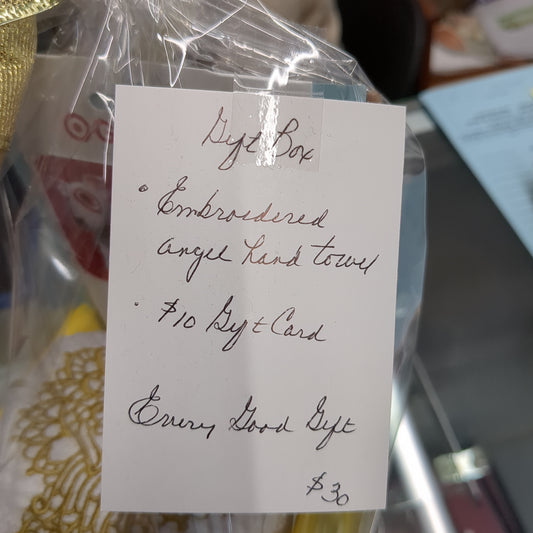 Gift Box
• Embroidered
angel hand towel
• $10 Gift Card
Every Good Gift
$30